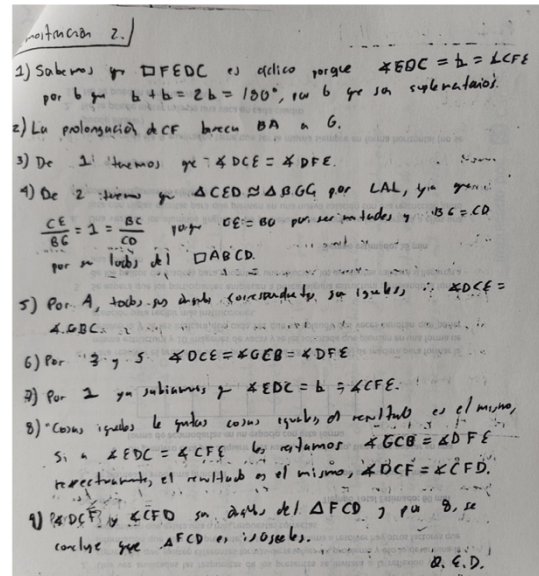 mostración 2.)
1) Sabemos q □FEDC es cíclico porque ∡EDC = b = ∡CFE
por b que b + b = 2b = 180°, por b que son suplementarios.
2) La prolongación de CF BA a G.
3) De 1 tnemos qe ∡DCE = ∡DFE.
4) De 2 tnemos qu △CED ≅ △BGC por LAL, ya que
CE/BG = 1 = BC/CD pues CE = BG por ser mitades y BC = CD
por ser lados del □ABCD.
5) Por 4, todos sus correspondientes son iguales, ∴ ∡DCE =
∡GBC.
6) Por 3 y 5 ∡DCE = ∡GCB = ∡DFE
7) Por 1 ya sabiamos q ∡EDC = b = ∡CFE.
8) "Cosas iguales le quitas cosas iguales, el resultado es el mismo,
Si a ∡EDC = ∡CFE les restamos ∡GCB = ∡DFE
respectivamente, el resultado es el mismo, ∡DCF = ∡CFD.
9) ∡DCF y ∡CFD son del △FCD y por 8, se
concluye que △FCD es isósceles.
Q.E.D.